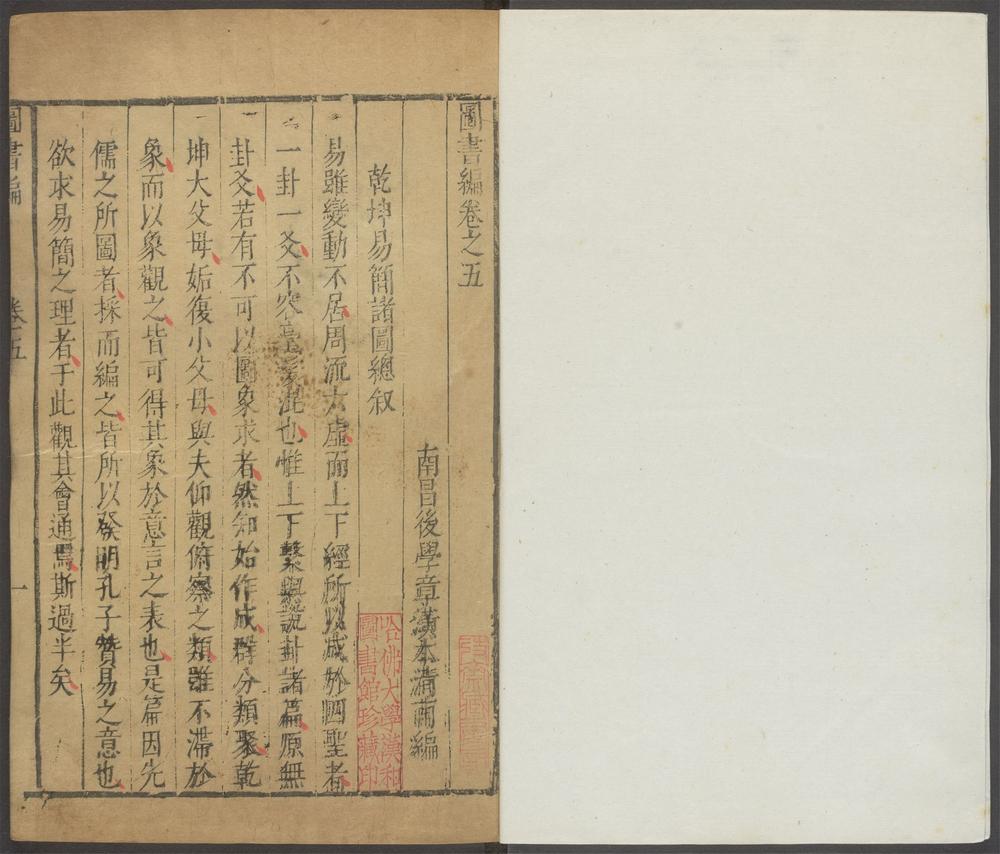 圖書編卷之五
南昌後學章潢本清甫編
乾坤易簡諸圖總叙
易雖變動不居周流六虛而上下經所以成於四聖者
一卦一爻不容毫髮混也惟上下繫與說卦諸篇原無
卦爻若有不可以圖象求者然知始作成群分類聚乾
坤大父母姤復小父母與夫仰觀俯察之類雖不滯於
象而以象觀之皆可得其象於意言之表也是篇因先
儒之所圖者採而編之皆所以發明孔子贊易之意也
欲求易簡之理者于此觀其會通焉斯過半矣
圖書編
卷五
一
哈佛大學漢和
圖書館珍藏印